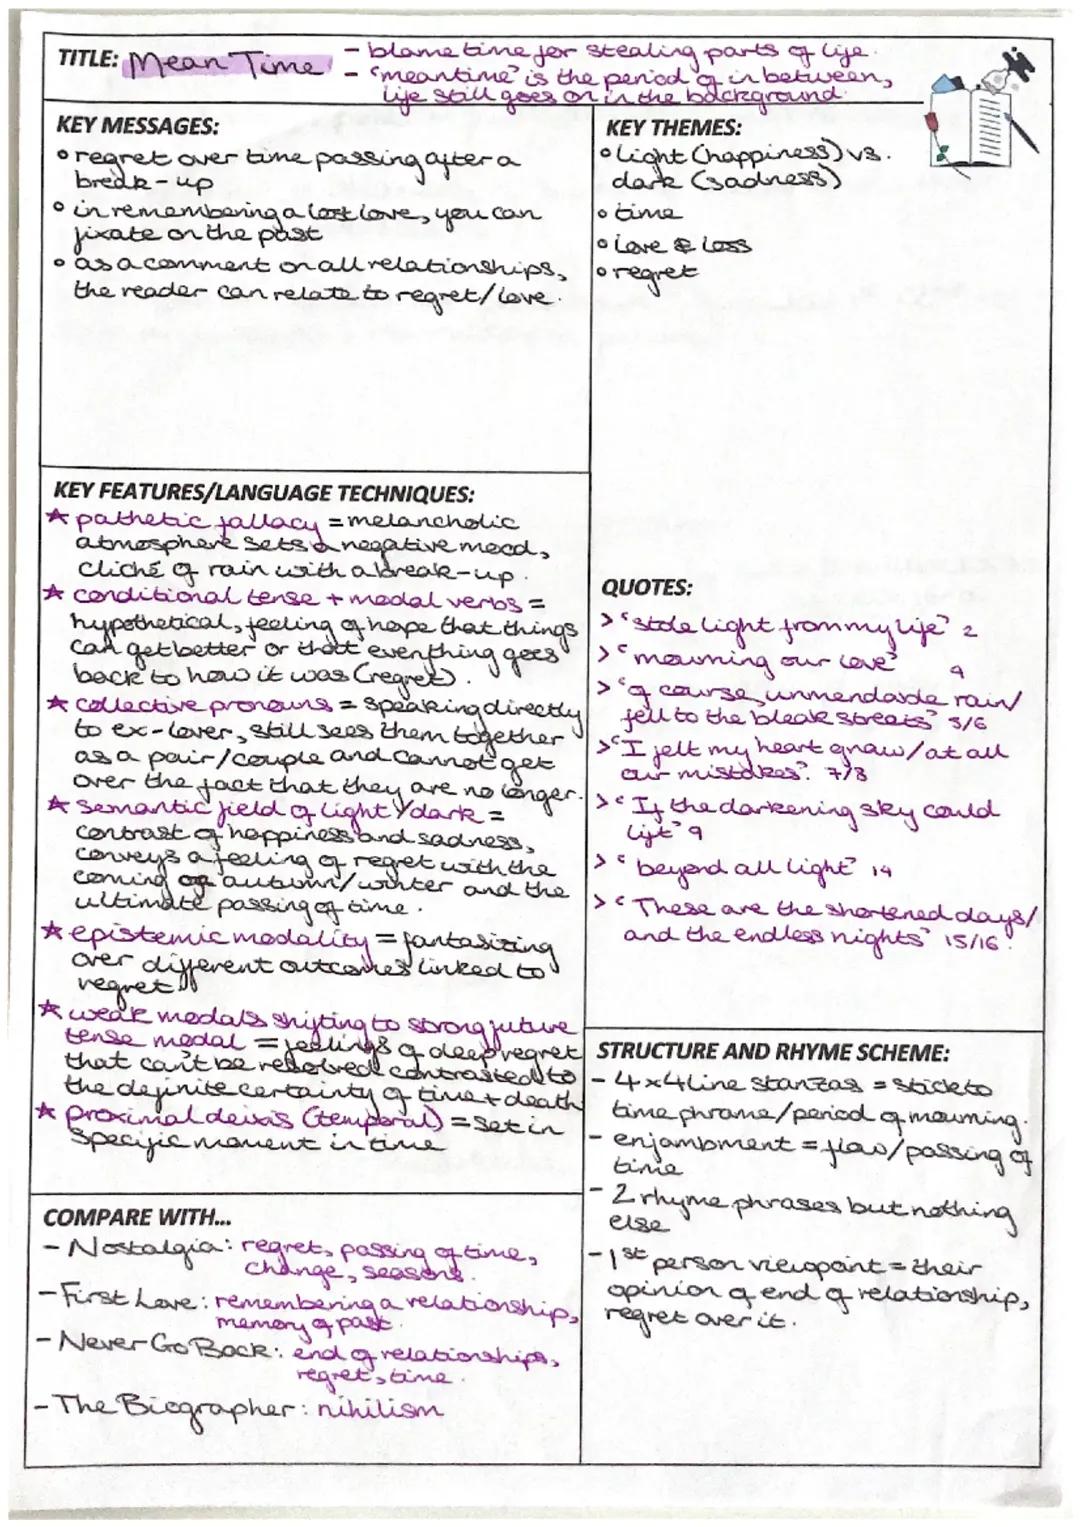 TITLE: Mean Time
- blame time for stealing parts of life.
- 'meantime' is the period of in between,
life still goes on in the background.
KEY MESSAGES:
• regret over time passing after a
break-up
• in remembering a lost love, you can
fixate on the past
• as a comment on all relationships,
the reader can relate to regret/love.
KEY THEMES:
• light (happiness) vs.
dark (sadness)
• time
• love & loss
• regret
KEY FEATURES/LANGUAGE TECHNIQUES:
☆ pathetic fallacy = melancholic
atmosphere sets a negative mood,
cliché of rain with a break-up.
☆ conditional tense + modal verbs =
hypothetical, feeling of hope that things
can get better or that everything goes
back to how it was (regret).
☆ collective pronouns = speaking directly
to ex-lover, still sees them together
as a pair/couple and cannot get
over the fact that they are no longer.
☆ semantic field of light/dark =
contrast of happiness and sadness,
conveys a feeling of regret with the
coming of autumn/winter and the
ultimate passing of time.
☆ epistemic modality = fantasizing
over different outcomes linked to
regret
☆ weak modals shifting to strong future
tense modal = feelings of deep regret
that can't be resolved contrasted to
the definite certainty of time + death
☆ proximal deixis (temporal) = set in
specific moment in time
QUOTES:
> 'stole light from my life' 2
> 'mourning our love' 4
> 'of course, unmendable rain/
fell to the bleak streets' 5/6
> 'I felt my heart gnaw/at all
our mistakes'. 7/8
> 'If the darkening sky could
lift' 9
> 'beyond all light' 14
> 'These are the shortened days/
and the endless nights' 15/16.
STRUCTURE AND RHYME SCHEME:
- 4x4 line stanzas = stick to
time phrame/period of mourning.
- enjambment = flow/passing of
time
- 2 rhyme phrases but nothing
else
- 1st person viewpoint = their
opinion of end of relationship,
regret over it.
COMPARE WITH...
- Nostalgia: regret, passing of time,
change, seasons.
- First Love: remembering a relationship,
memory of past.
- Never Go Back: end of relationships,
regret, time.
- The Biographer: nihilism